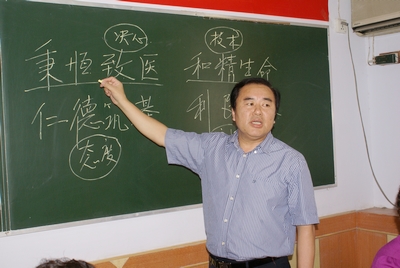 决心 技术
秉恒致医 和精生命
仁德筑基 利
态度